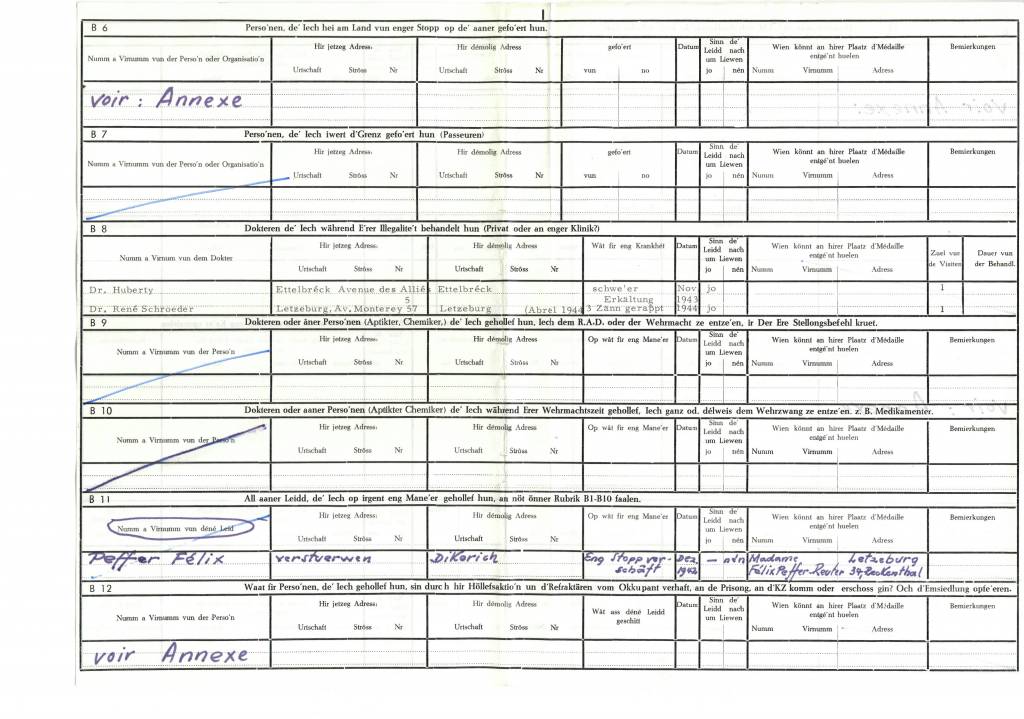 B 6 Perso'nen, de' Iech hei am Land vun enger Stopp op de' aaner gefo'ert hun.
Numm a Virnumm vun der Perso'n oder Organisatio'n Hir jetzeg Adress: Hir démolig Adress gefo'ert Datum Sinn de' Leidd nach um Liewen Wien könnt an hirer Plaatz d'Médaille entgé'nt huelen Bemierkungen
Urtschaft Ströss Nr Urtschaft Ströss Nr vun no jo nén Numm Virnumm Adress
voir : Annexe
B 7 Perso'nen, de' Iech iwert d'Grenz gefo'ert hun (Passeuren)
Numm a Virnumm vun der Perso'n oder Organisatio'n Hir jetzeg Adress: Hir démolig Adress gefo'ert Datum Sinn de' Leidd nach um Liewen Wien könnt an hirer Plaatz d'Médaille entgé'nt huelen Bemierkungen
Urtschaft Ströss Nr Urtschaft Ströss Nr vun no jo nén Numm Virnumm Adress
B 8 Dokteren de' Iech während E'rer Illegalite't behandelt hun (Privat oder an enger Klinik?)
Numm a Virnum vun dem Dokter Hir jetzeg Adress: Hir démolig Adress Wät fir eng Krankhét Datum Sinn de' Leidd nach um Liewen Wien könnt an hirer Plaatz d'Médaille entgé'nt huelen Zuel vun de Visiten Dauer vun der Behandl.
Urtschaft Ströss Nr Urtschaft Ströss Nr jo nén Numm Virnumm Adress
Dr. Huberty Ettelbréck Avenue des Alliés Ettelbréck schwe'er Nov. jo 1
5 Erkältung 1943
Dr. René Schroeder Letzeburg, Av. Monterey 57 Letzeburg (Abrel 1944 3 Zänn gerappt 1944 jo 1
B 9 Dokteren oder åner Perso'nen (Aptikter, Chemiker,) de' Iech gehollef hun, Iech dem R.A.D. oder der Wehrmacht ze entze'en, ir Der Ere Stellongsbefehl kruet.
Numm a Virnumm vun der Perso'n Hir jetzeg Adress: Hir démolig Adress Op wät fir eng Mane'er Datum Sinn de' Leidd nach um Liewen Wien könnt an hirer Plaatz d'Médaille entgé'nt huelen Bemierkungen
Urtschaft Ströss Nr Urtschaft Ströss Nr jo nén Numm Virnumm Adress
B 10 Dokteren oder aaner Perso'nen (Aptikter Chemiker) de' Iech während Erer Wehrmachtszeit gehollef, Iech ganz od. délweis dem Wehrzwang ze entze'en. z. B. Medikamenter.
Numm a Virnumm vun der Perso'n Hir jetzeg Adress: Hir démolig Adress Op wät fir eng Mane'er Datum Sinn de' Leidd nach um Liewen Wien könnt an hirer Plaatz d'Médaille entgé'nt huelen Bemierkungen
Urtschaft Ströss Nr Urtschaft Ströss Nr jo nén Numm Virnumm Adress
B 11 All aaner Leidd, de' Iech op irgent eng Mane'er gehollef hun, an nöt önner Rubrik B1-B10 faalen.
Numm a Virnumm vun déné Leid Hir jetzeg Adress: Hir démolig Adress Op wät fir eng Mane'er Datum Sinn de' Leidd nach um Liewen Wien könnt an hirer Plaatz d'Médaille entgé'nt huelen Bemierkungen
Urtschaft Ströss Nr Urtschaft Ströss Nr jo nén Numm Virnumm Adress
Peffer Félix verstuerwen Dikerich Eng Stopp ver- Dez. — nén Madame Letzeburg
schäft 1942 Félix Peffer-Reuter 34, Rackenthal
B 12 Waat fir Perso'nen, de' Iech gehollef hun, sin durch hir Höllefsaktio'n un d'Refraktären vom Okkupant verhaft, an de Prisong, an d'KZ komm oder erschoss gin? Och d'Emsiedlung opfe'eren.
Numm a Virnumm vun der Perso'n Hir jetzeg Adress: Hir démolig Adress Wät ass déné Leidd geschitt Datum Sinn de' Leidd nach um Liewen Wien könnt an hirer Plaatz d'Médaille entgé'nt huelen Bemierkungen
Urtschaft Ströss Nr Urtschaft Ströss Nr jo nén Numm Virnumm Adress
voir Annexe